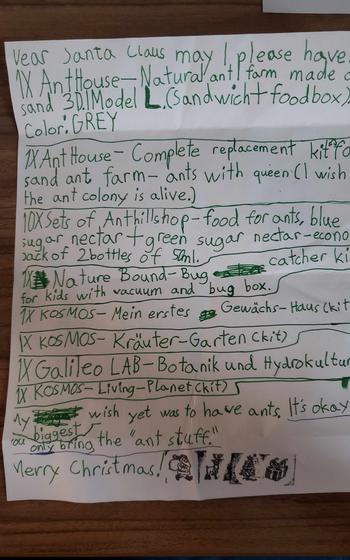 Dear Santa Claus may I please have
1X AntHouse-Natural ant farm made o
sand 3D.1Model L.(Sandwich+foodbox)
Color: GREY
1X AntHouse- Complete replacement kit fo
sand ant farm- ants with queen (I wish
the ant colony is alive.)
10X Sets of Anthillshop-food for ants, blue
sugar nectar + green sugar nectar-econo
pack of 2 bottles of 50ml.
1X Nature Bound-Bug catcher ki
for kids with vacuum and bug box.
1X KOSMOS-Mein erstes Gewächs-Haus (kit
1X KOSMOS-Kräuter-Garten (kit)
1X Galileo LAB-Botanik und Hydrokultur
1X KOSMOS-Living-Planet (kit)
My biggest wish yet was to have ants. It's okay
you only bring the "ant stuff."
Merry Christmas!